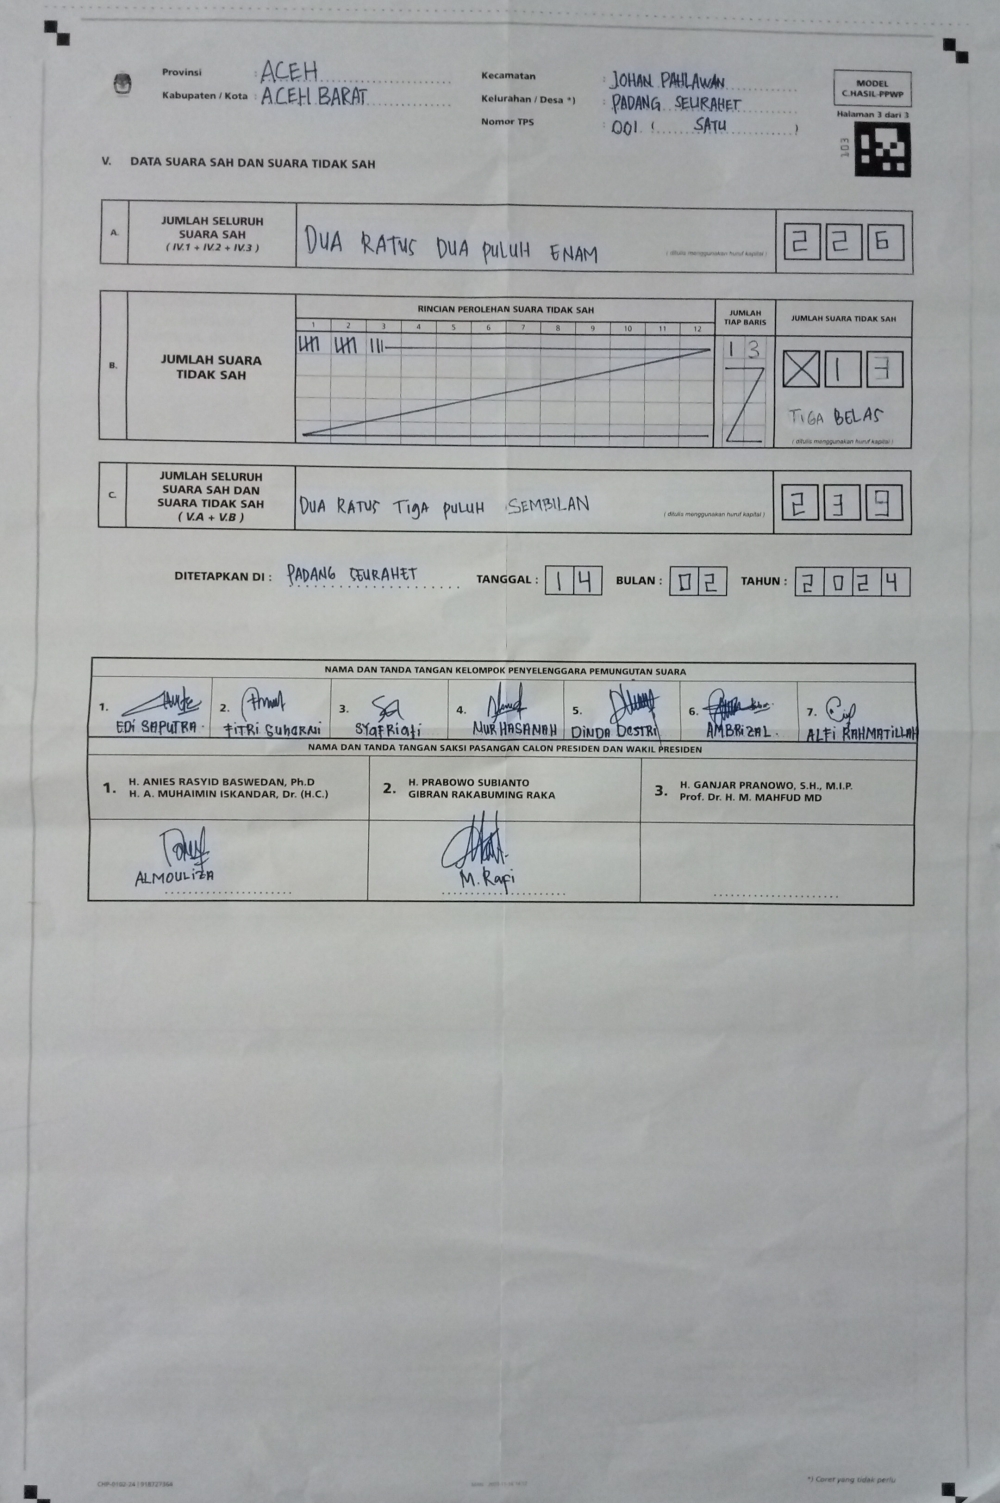 Provinsi : ACEH
Kabupaten / Kota : ACEH BARAT
Kecamatan : JOHAN PAHLAWAN
Kelurahan / Desa *) : PADANG SEURAHET
Nomor TPS : 001 ( SATU )
MODEL
C.HASIL-PPWP
Halaman 3 dari 3
103
V. DATA SUARA SAH DAN SUARA TIDAK SAH
A. JUMLAH SELURUH
SUARA SAH
( IV.1 + IV.2 + IV.3 )
DUA RATUS DUA PULUH ENAM
( ditulis menggunakan huruf kapital )
2 2 6
B. JUMLAH SUARA
TIDAK SAH
RINCIAN PEROLEHAN SUARA TIDAK SAH
1 2 3 4 5 6 7 8 9 10 11 12
JUMLAH
TIAP BARIS
13
JUMLAH SUARA TIDAK SAH
X 1 3
TIGA BELAS
( ditulis menggunakan huruf kapital )
C. JUMLAH SELURUH
SUARA SAH DAN
SUARA TIDAK SAH
( V.A + V.B )
DUA RATUS TIGA PULUH SEMBILAN
( ditulis menggunakan huruf kapital )
2 3 9
DITETAPKAN DI : PADANG SEURAHET TANGGAL : 14 BULAN : 02 TAHUN : 2024
NAMA DAN TANDA TANGAN KELOMPOK PENYELENGGARA PEMUNGUTAN SUARA
1. EDI SAPUTRA
2. FITRI SUHARNI
3. SYAFRIATI
4. NUR HASANAH
5. DINDA DESTRI
6. AMBRIZAL
7. ALFI RAHMATILLAH
NAMA DAN TANDA TANGAN SAKSI PASANGAN CALON PRESIDEN DAN WAKIL PRESIDEN
1. H. ANIES RASYID BASWEDAN, Ph.D
H. A. MUHAIMIN ISKANDAR, Dr. (H.C.)
2. H. PRABOWO SUBIANTO
GIBRAN RAKABUMING RAKA
3. H. GANJAR PRANOWO, S.H., M.I.P.
Prof. Dr. H. M. MAHFUD MD
ALMOULIZA
M. Rafi
*) Coret yang tidak perlu